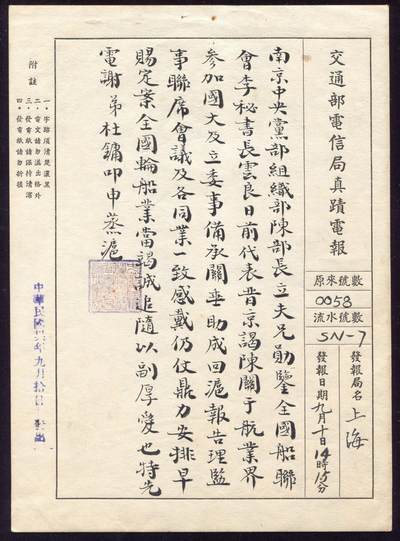 交通部電信局真蹟電報
原來號數
0058
流水號數
SN-7
發報局名 上海
發報日期 九月十日14時15分
南京中央黨部組織部陳部長立夫兄勛鑒全國船聯
會李秘書長雲良日前代表晋京謁陳關于航業界
參加國大及立委事備承關垂助成回滬報告理監
事聯席會議及各同業一致感戴仍仗鼎力安排早
賜定案全國輪船業當竭誠追隨以副厚愛也特先
電謝弟杜鏞叩申蒸滬
附註
一•字跡須清楚濃黑
二•電文請勿溢出格外
三•發電紙請保持清潔
四•發電紙請勿折摺